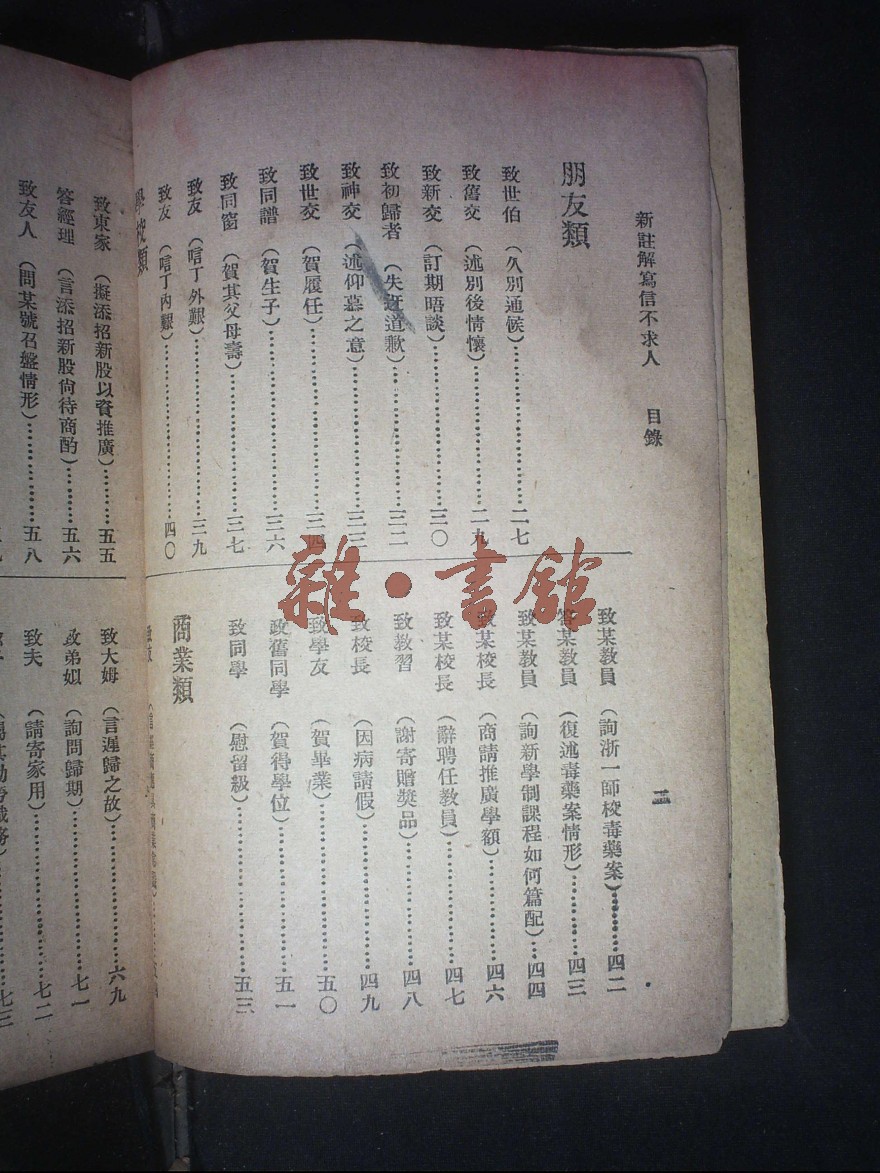 新註解寫信不求人 目錄
二
朋友類
致世伯(久別通候)…………二七
致舊交(述別後情懷)…………二九
致新交(訂期晤談)…………三〇
致初歸者(失迓道歉)…………三二
致神交(述仰慕之意)…………三三
致世交(賀履任)…………三四
致同譜(賀生子)…………三六
致同窗(賀其父母壽)…………三七
致友(唁丁外艱)…………三九
致友(唁丁內艱)…………四〇
學校類
致某教員(詢浙一師校毒藥案)…………四二
答某教員(復述毒藥案情形)…………四三
致某教員(詢新學制課程如何篇配)…四四
致某校長(商請推廣學額)…………四六
致某校長(辭聘任教員)…………四七
致教習(謝寄贈獎品)…………四八
致校長(因病請假)…………四九
致學友(賀畢業)…………五〇
致舊同學(賀得學位)…………五一
致同學(慰留級)…………五三
商業類
致東家(擬添招新股以資推廣)…………五五
答經理(言添招新股尙待商酌)…………五六
致友人(問某號召盤情形)…………五八
致大姆(言遲歸之故)…………六九
致弟姒(詢問歸期)…………七一
致夫(請寄家用)…………七二
七三
雜·書館